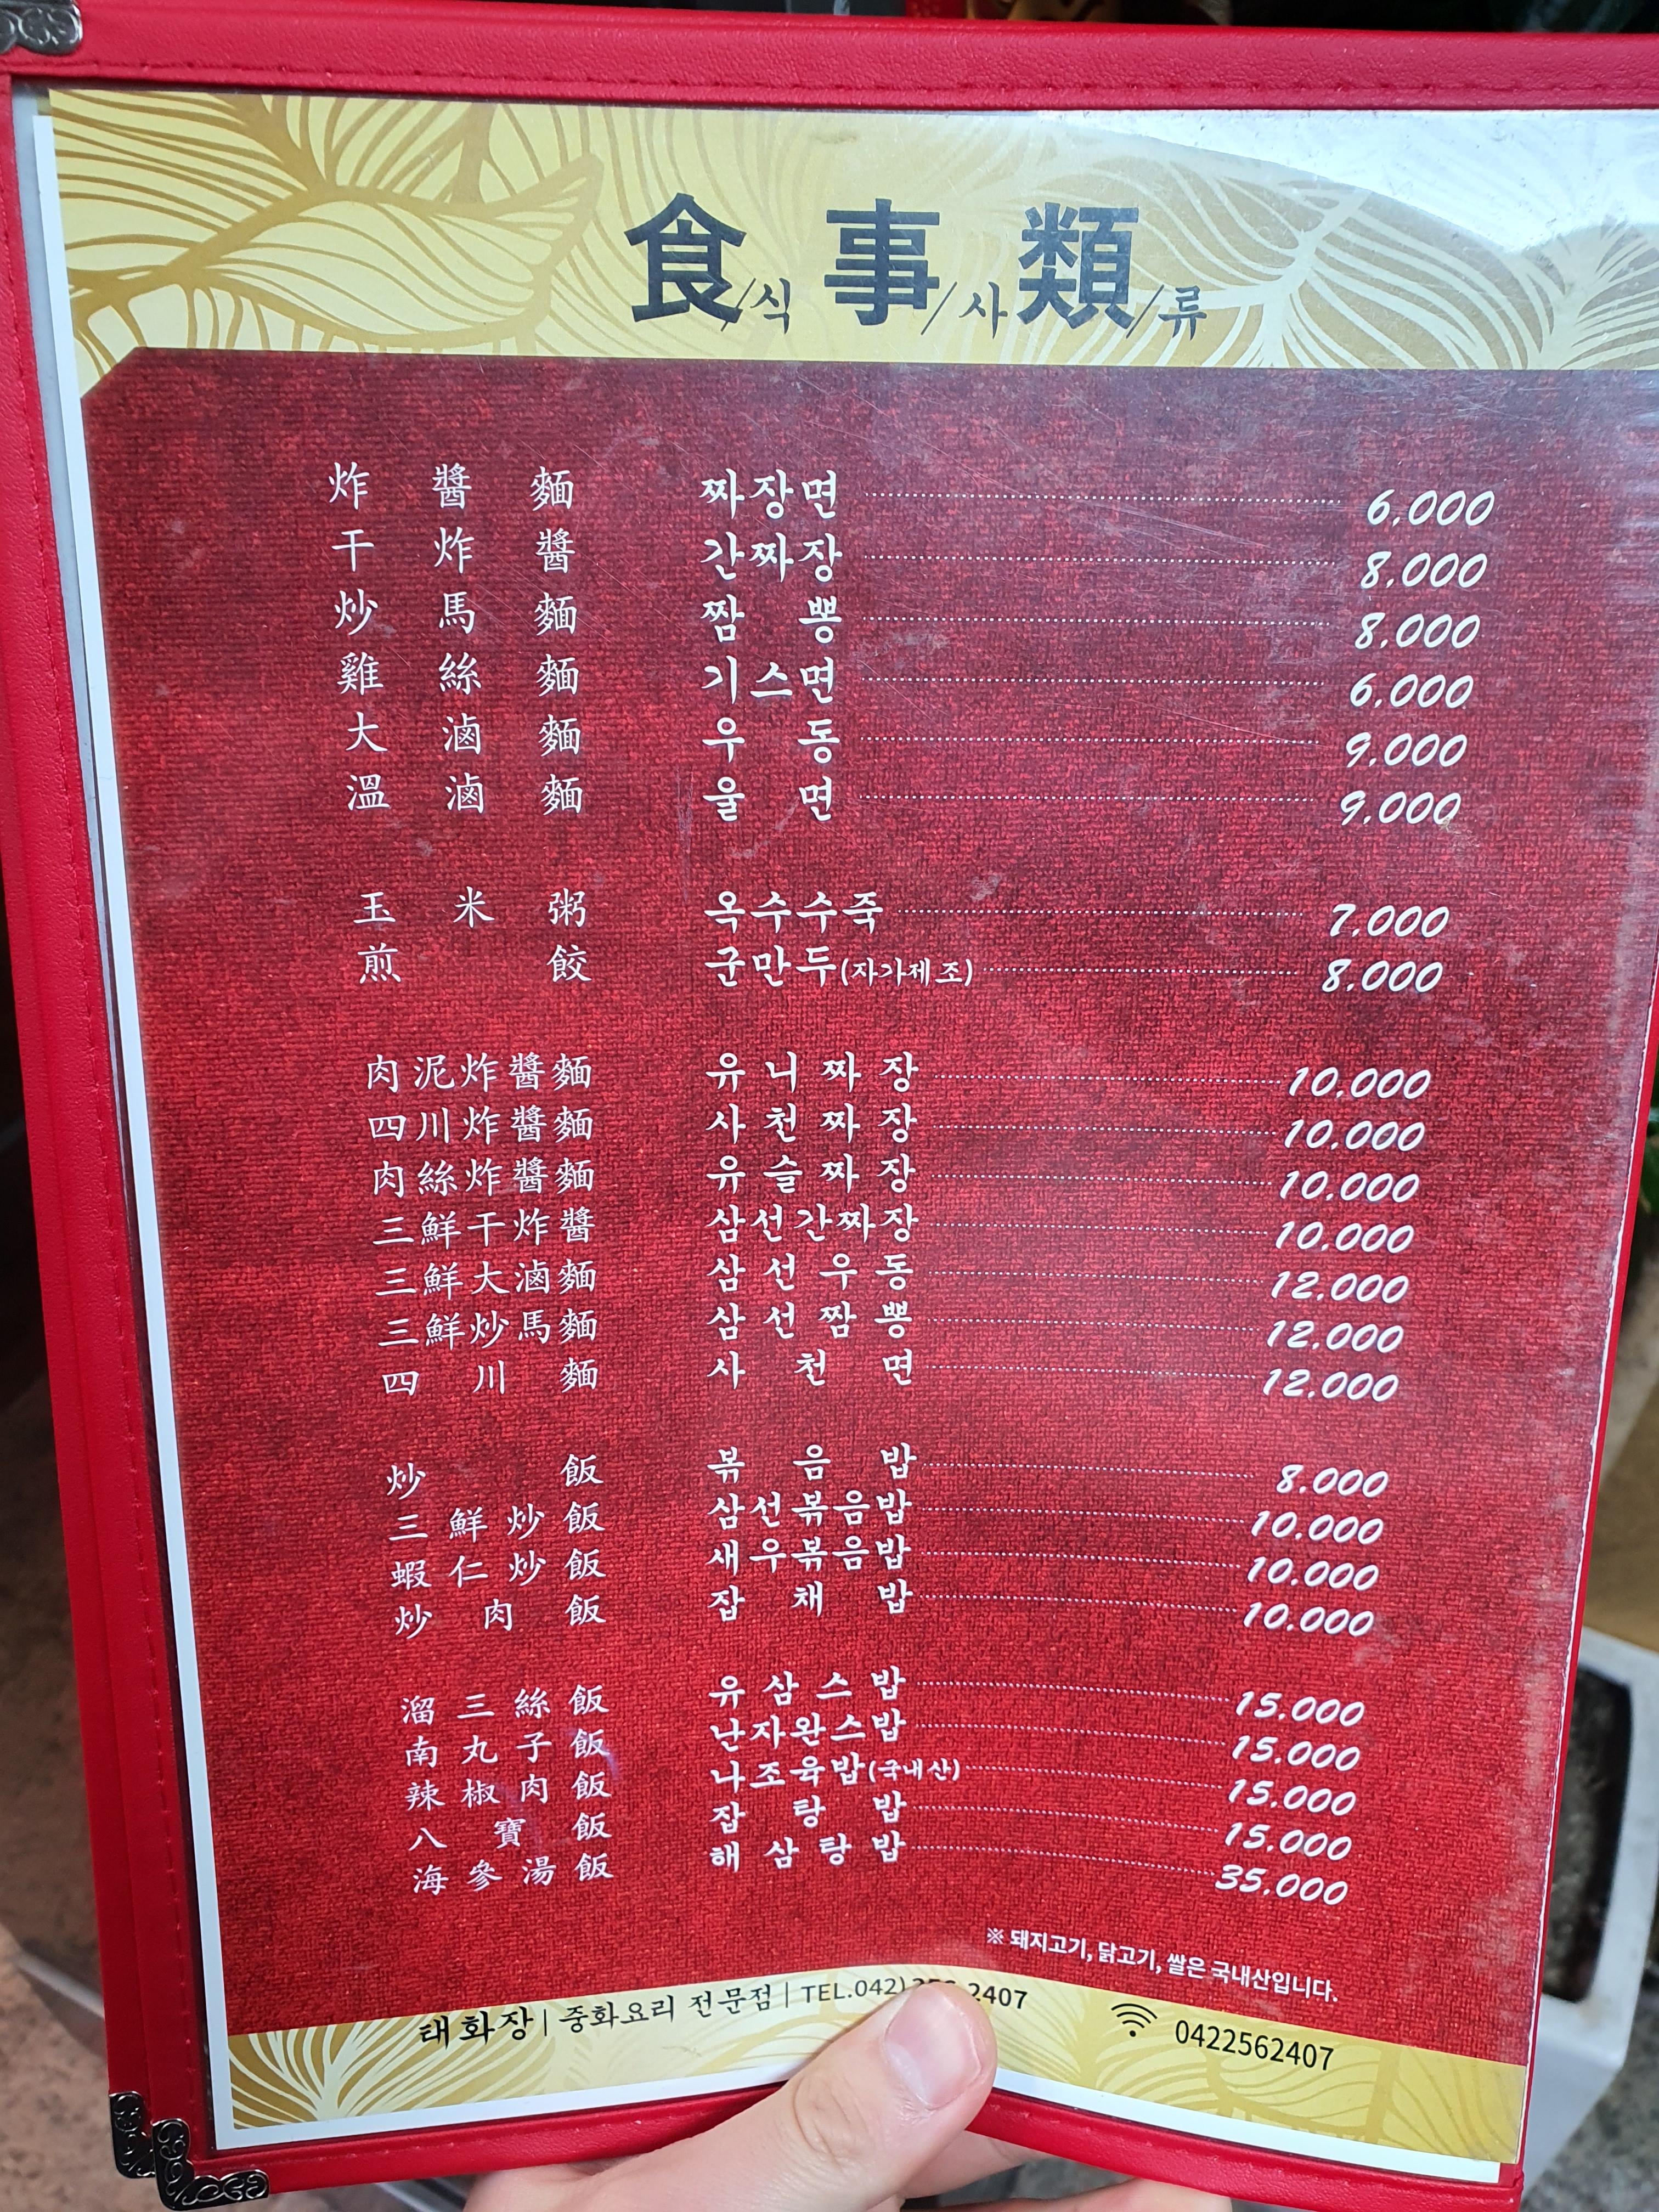 食/식 事/사 類/류
炸醬麵 짜장면 6,000
干炸醬 간짜장 8,000
炒馬麵 짬뽕 8,000
雞絲麵 기스면 6,000
大滷麵 우동 9,000
溫滷麵 울면 9,000
玉米粥 옥수수죽 7,000
煎餃 군만두(자가제조) 8,000
肉泥炸醬麵 유니짜장 10,000
四川炸醬麵 사천짜장 10,000
肉絲炸醬麵 유슬짜장 10,000
三鮮干炸醬 삼선간짜장 10,000
三鮮大滷麵 삼선우동 12,000
三鮮炒馬麵 삼선짬뽕 12,000
四川麵 사천면 12,000
炒飯 볶음밥 8,000
三鮮炒飯 삼선볶음밥 10,000
蝦仁炒飯 새우볶음밥 10,000
炒肉飯 잡채밥 10,000
溜三絲飯 유삼스밥 15,000
南丸子飯 난자완스밥 15,000
辣椒肉飯 나조육밥(국내산) 15,000
八寶飯 잡탕밥 15,000
海參湯飯 해삼탕밥 35,000
※ 돼지고기, 닭고기, 쌀은 국내산입니다.
태화장 | 중화요리 전문점 | TEL.042) 2407
0422562407